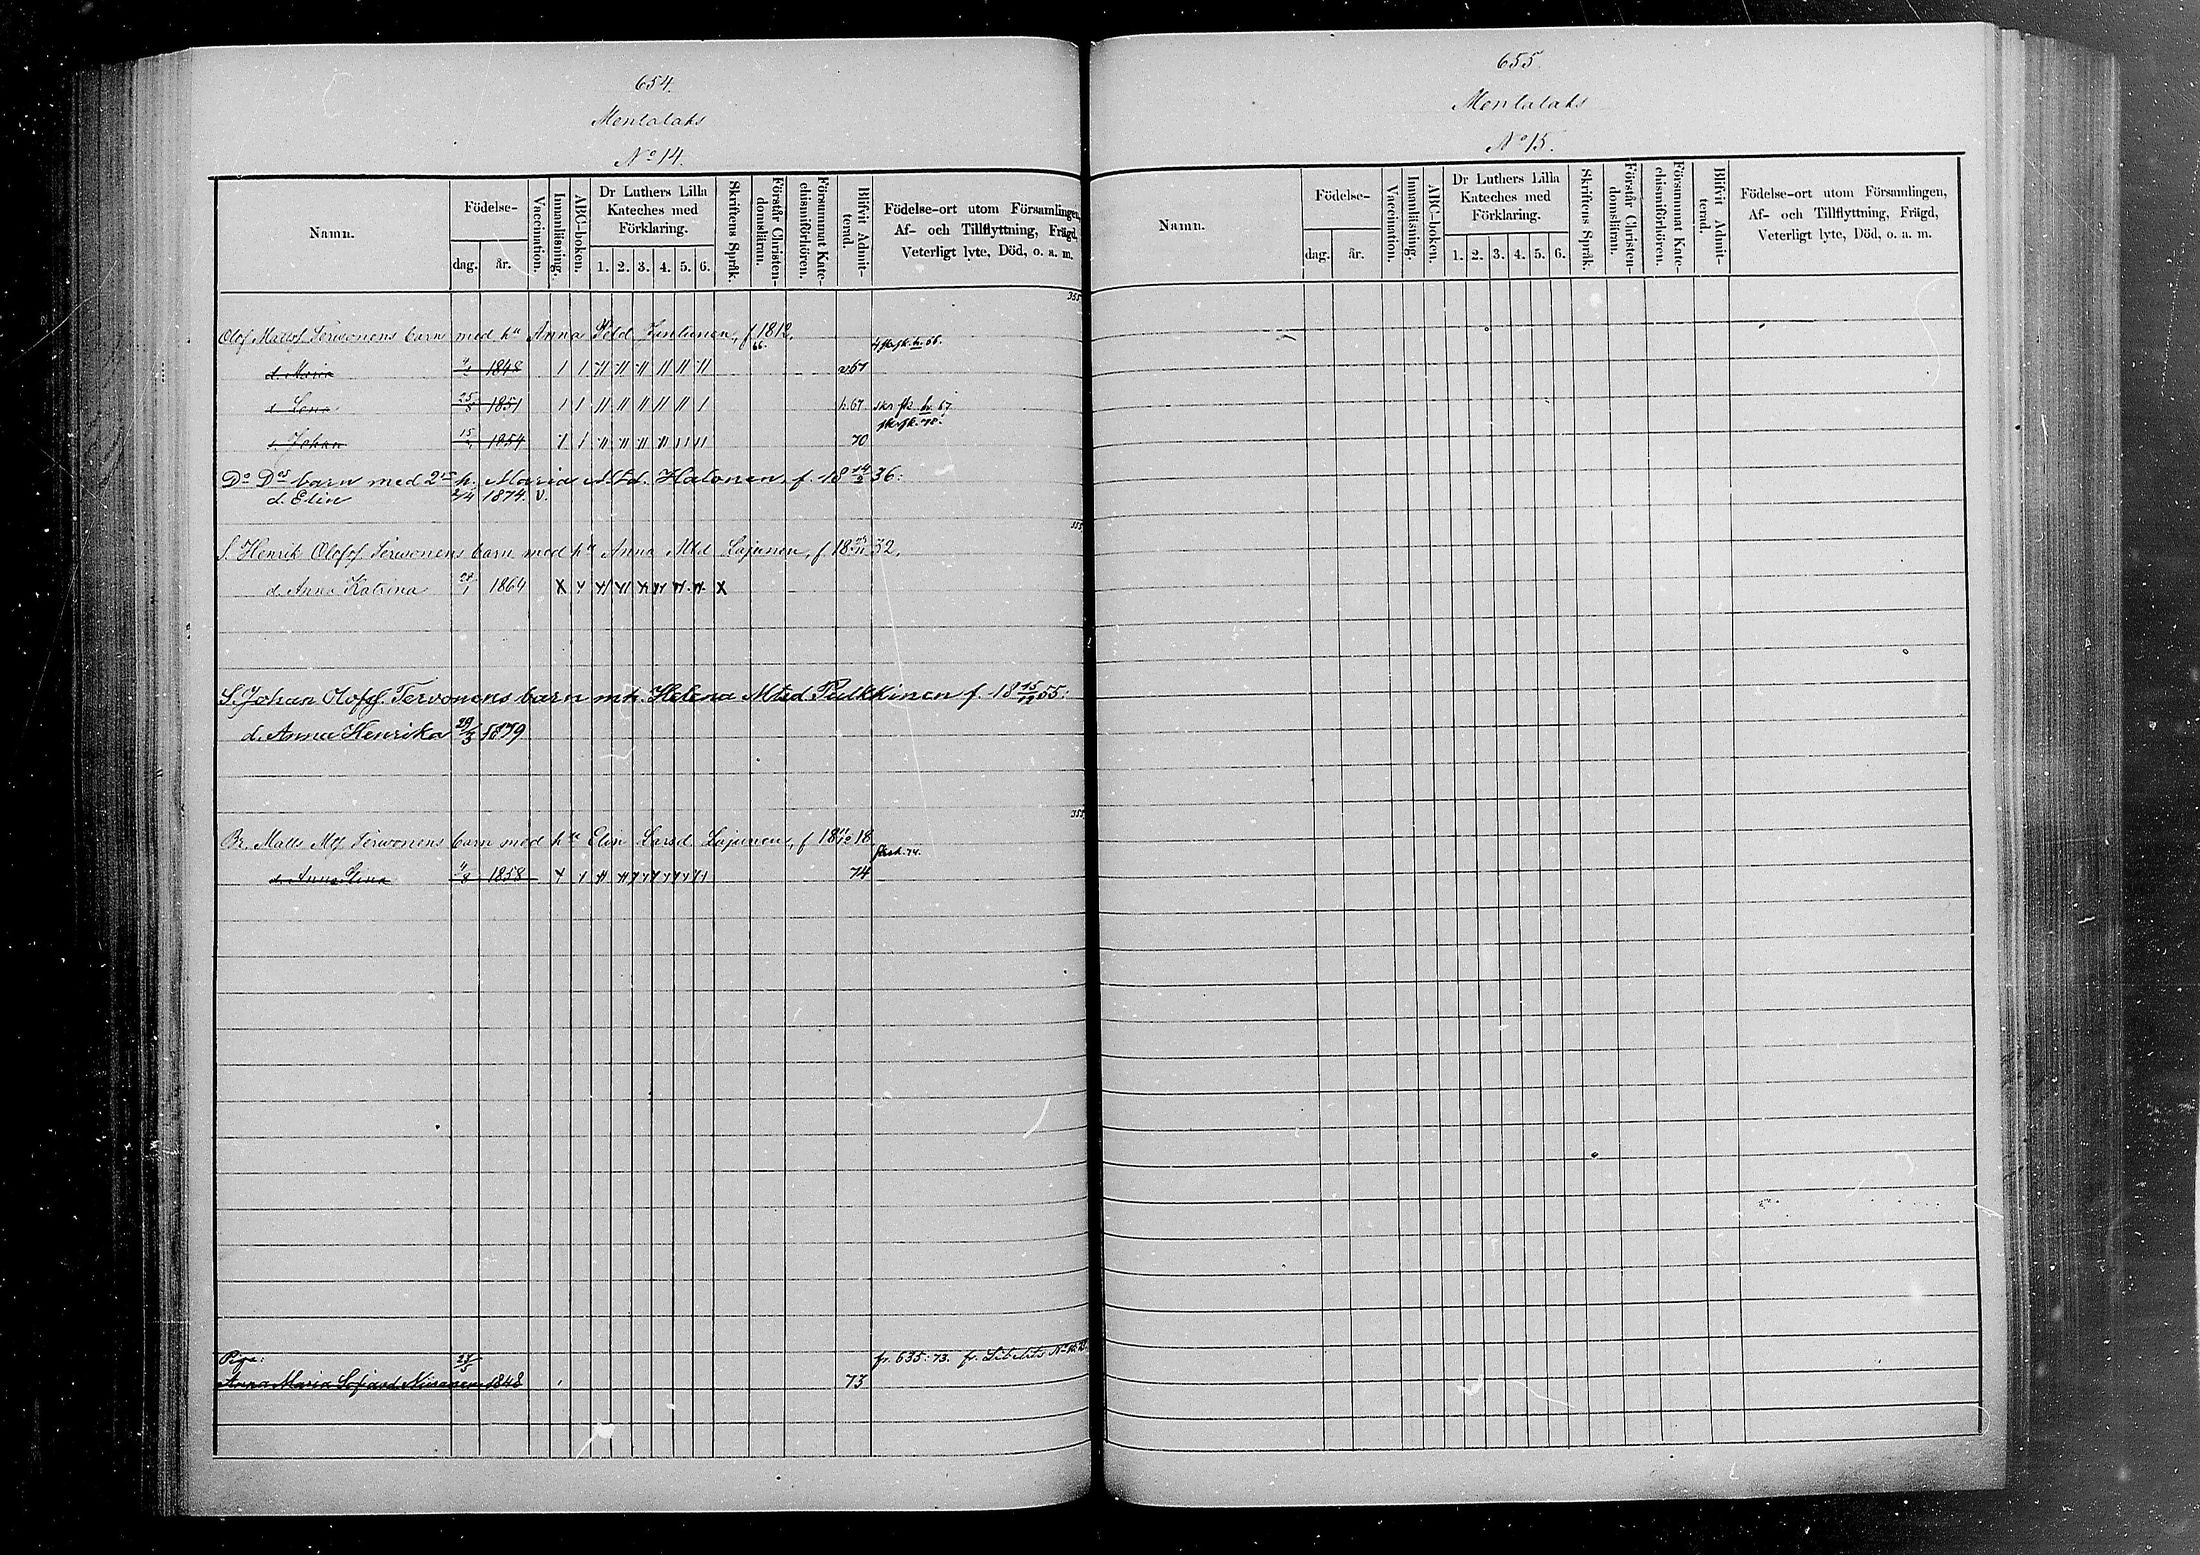 654.
Mentalaks
No 14.
Namn.
Födelse-
dag. år.
Vaccination.
Innanläsning.
ABC-boken.
Dr Luthers Lilla
Kateches med
Förklaring.
1. 2. 3. 4. 5. 6.
Skriftens Språk.
Förstår Christen-
domsläran.
Försummat Kate-
chismiförhören.
Blifvit Admit-
terad.
Födelse-ort utom Församlingen,
Af- och Tillflyttning, Frägd,
Veterligt lyte, Död, o. a. m.
355
Olof Mattsf. Terwonens barn med hu Anna f. 1812.
66.
d. Maria 1848 67
d. Lena 25/8 1851 h. 67 skr. fk. h. 67
s. Johan 1854 70
Do Dos barn med 2 h. Maria Halonen, f. 18 14/2 36:
d. Elin 2/4 1874. v.
355
S. Henrik Olofsf. Terwonens barn med hu Anna Mtd Lajunen, f. 18 32.
d. Anna Katrina 28/1 1864
S. Johan Olofsf. Tervonens barn m h. Helena Mtsd Pulkkinen f. 18 15/12 55:
d. Anna Henrika 29/3 1879
355
Br. Matts Mtsf. Terwonens barn med hu Elin Larsd Lajunen, f. 18 11/12 18.
d. Anna Elina 11/8 1858 74
Piga: 27/5 fr. 635: 73. fr. Libelits No
Anna Maria Niiranen 1848 73
655.
Mentalaks
No 15.
Namn.
Födelse-
dag. år.
Vaccination.
Innanläsning.
ABC-boken.
Dr Luthers Lilla
Kateches med
Förklaring.
1. 2. 3. 4. 5. 6.
Skriftens Språk.
Förstår Christen-
domsläran.
Försummat Kate-
chismiförhören.
Blifvit Admit-
terad.
Födelse-ort utom Församlingen,
Af- och Tillflyttning, Frägd,
Veterligt lyte, Död, o. a. m.